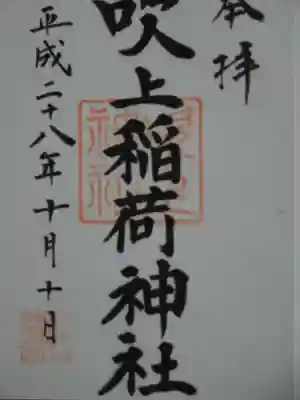 奉拝
吹上稲荷神社
平成二十八年十月十日